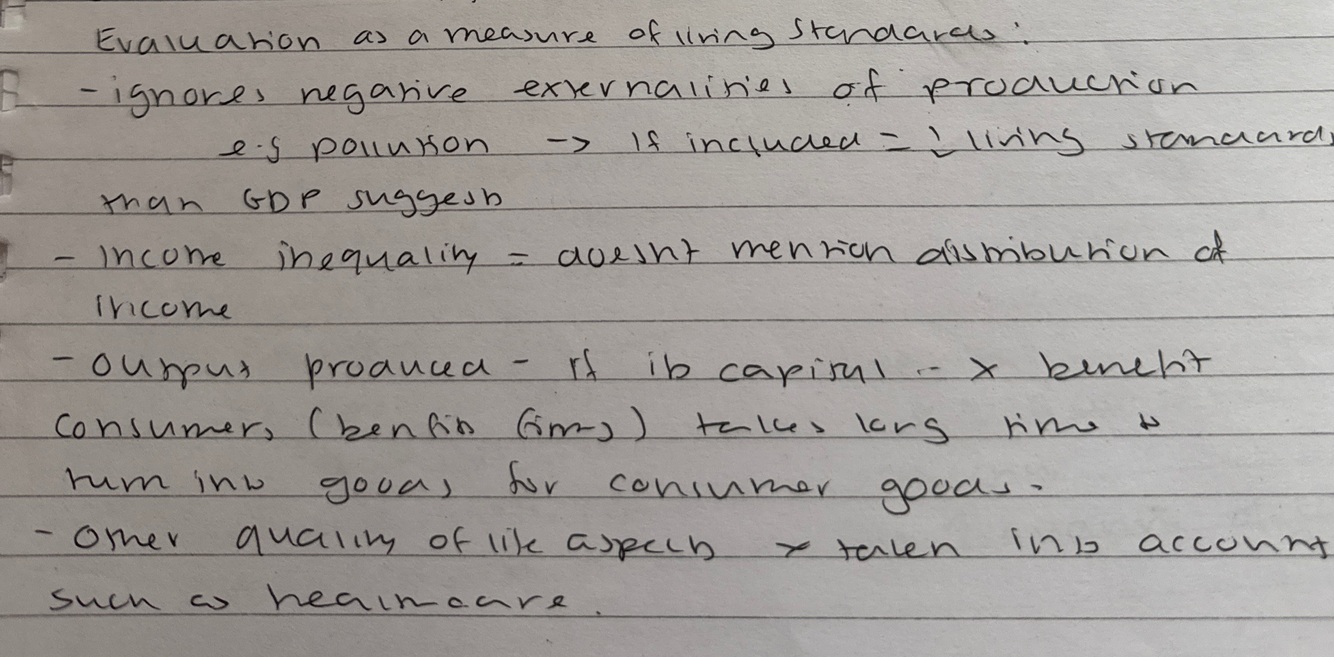 Evaluation as a measure of living standards:
- ignores negative externalities of production
e.g pollution -> if included = ↓ living standards
than GDP suggests
- income inequality = doesnt mention distribution of
income
- output produced - if its capital - x benefit
consumers (benfits firms) takes long time to
turn into goods for consumer goods.
- other quality of life aspects x taken into account
such as healthcare.